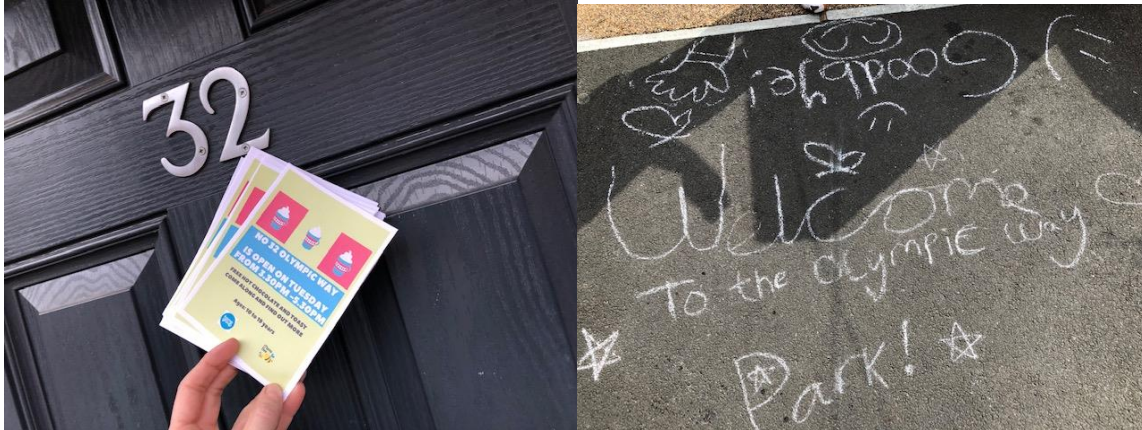 32
NO 32 OLYMPIC WAY
IS OPEN ON TUESDAY
FROM 3.30PM -5.30PM
FREE HOT CHOCOLATE AND TOASTY
COME ALONG AND FIND OUT MORE
Ages: 10 to 18 years
Goodbye!
Welcome
To the Olympic Way
Park!